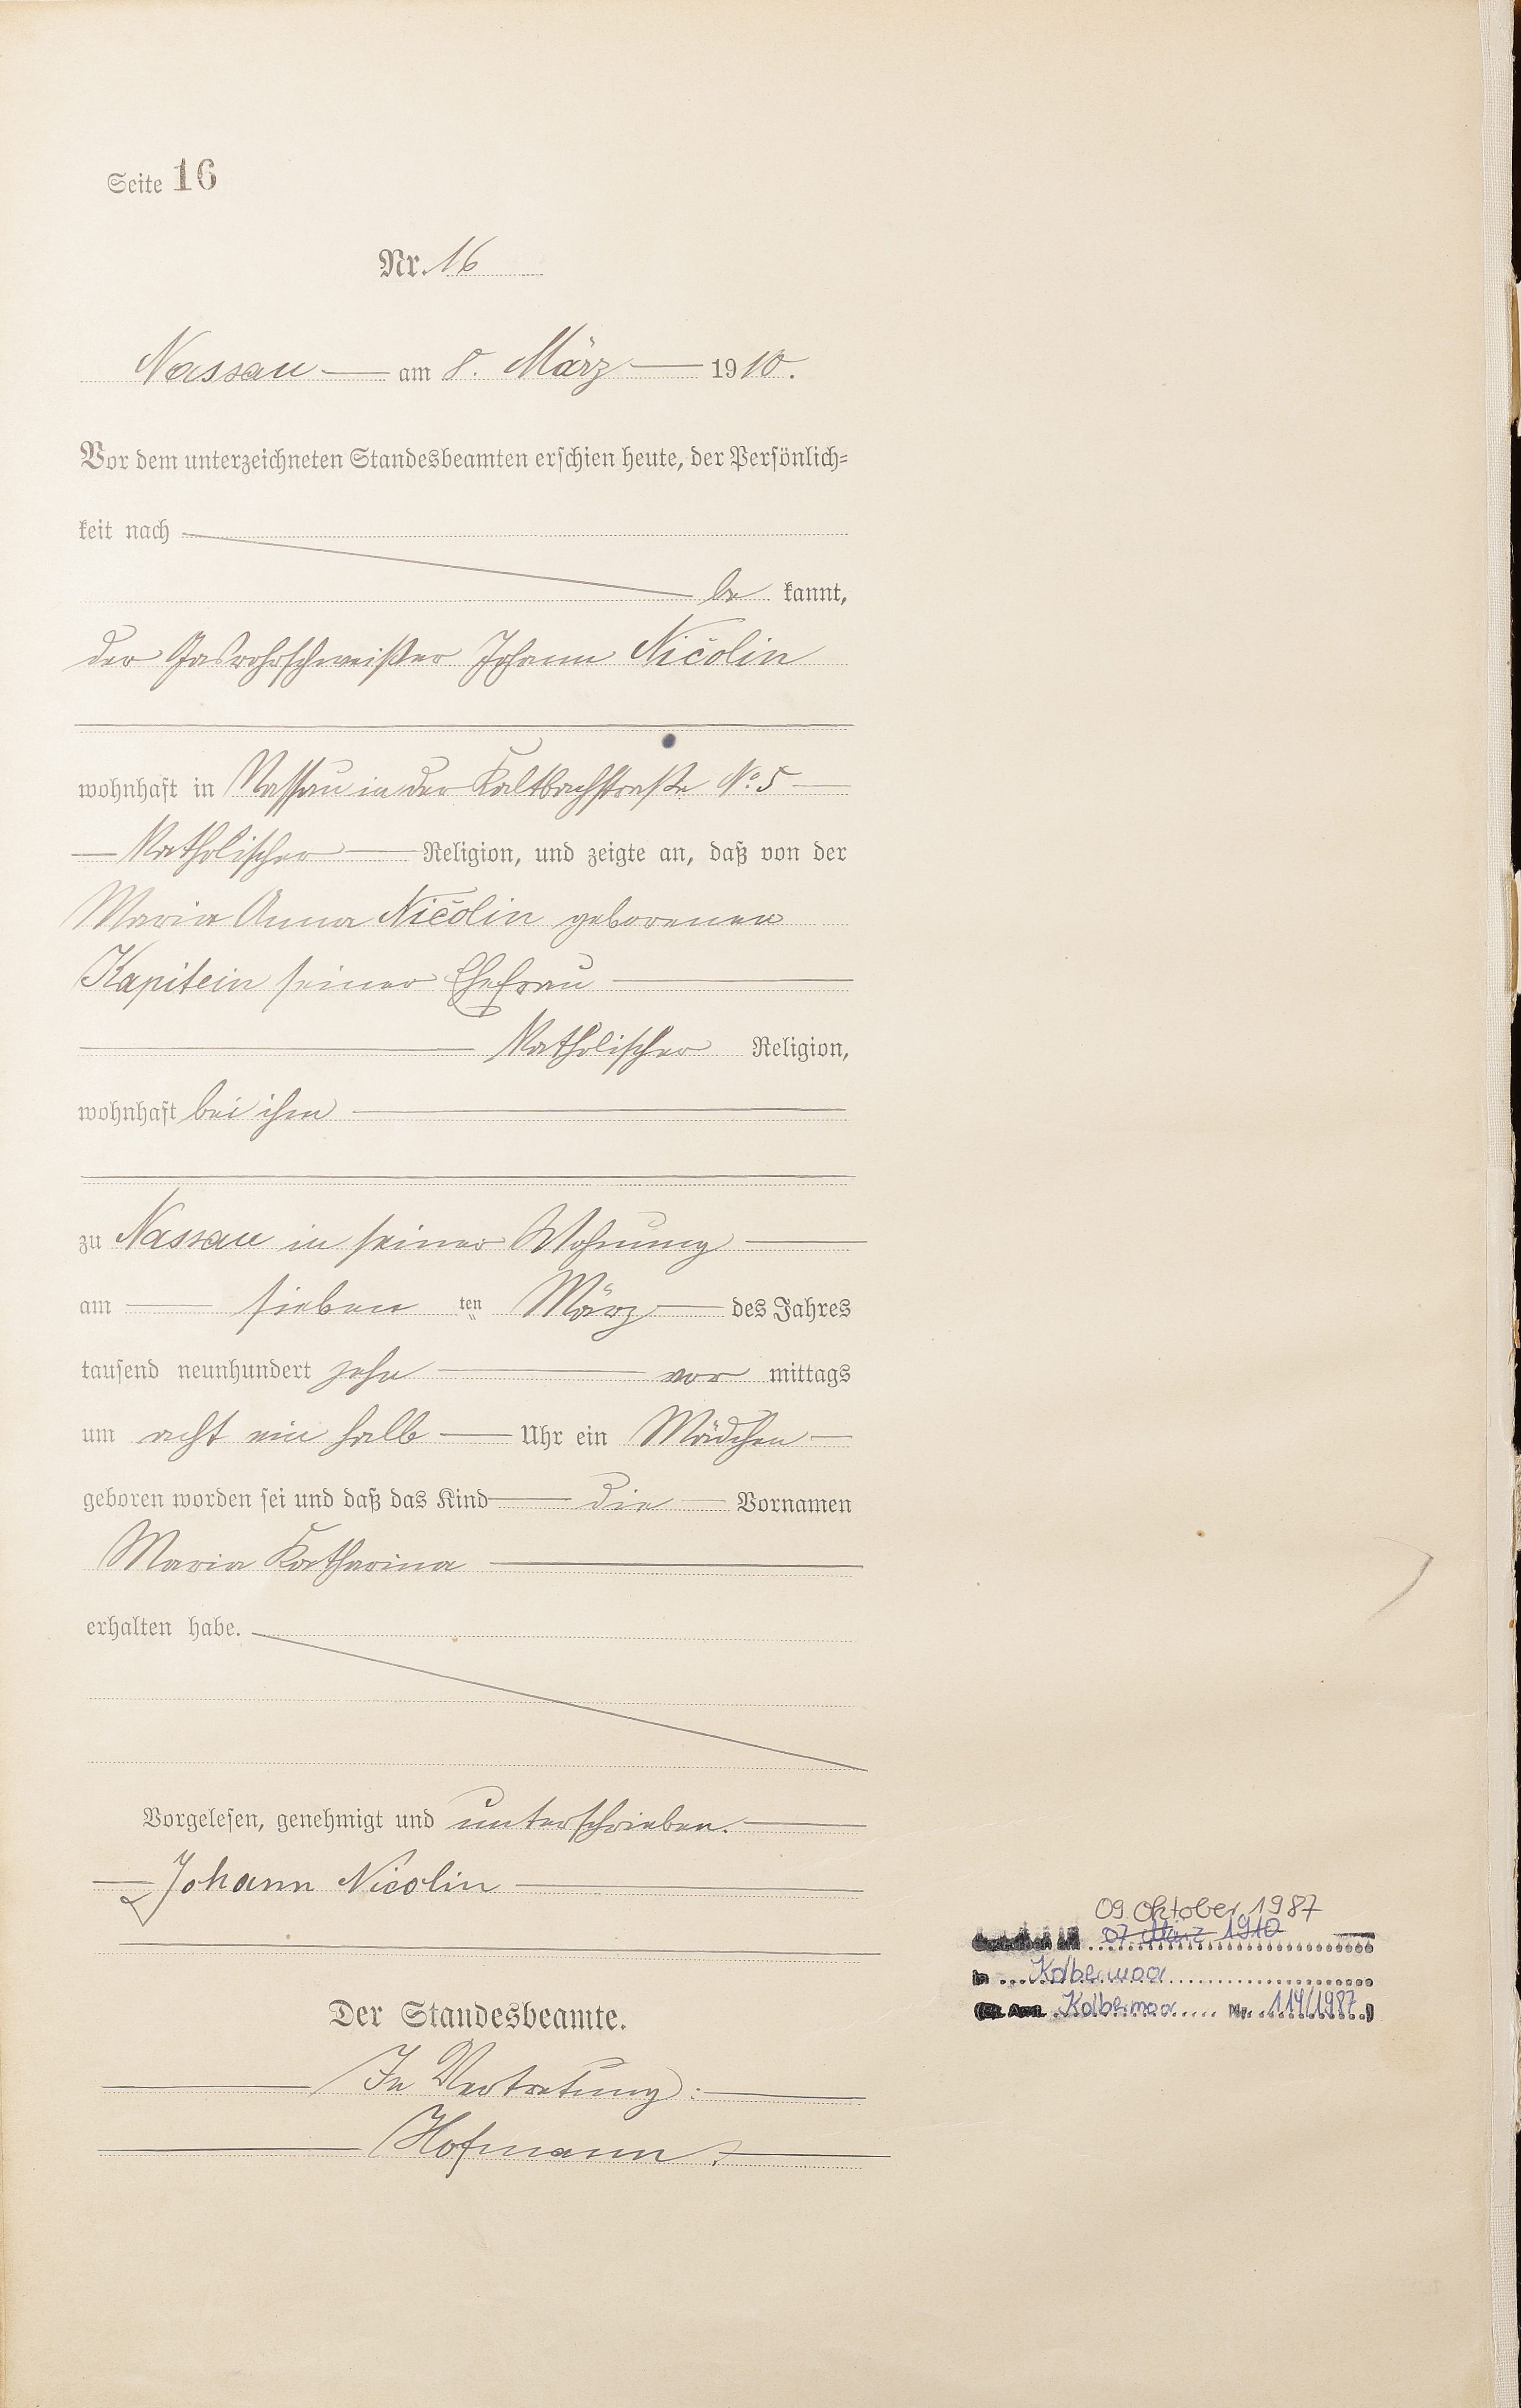 Seite 16
Nr. 16
Nassau am 8. März 1910.
Vor dem unterzeichneten Standesbeamten erschien heute, der Persönlich=
keit nach
be kannt,
der Gasrohrschweißer Johann Nicolin
wohnhaft in Nassau in der Kaltbachstraße No. 5
Katholischer Religion, und zeigte an, daß von der
Maria Anna Nicolin geborenen
Kapitein seiner Ehefrau
Katholischer Religion,
wohnhaft bei ihm
zu Nassau in seiner Wohnung
am sieben ten März des Jahres
tausend neunhundert zehn vor mittags
um acht ein halb Uhr ein Mädchen
geboren worden sei und daß das Kind die Vornamen
Maria Katharina
erhalten habe.
Vorgelesen, genehmigt und unterschrieben.
Johann Nicolin
09. Oktober 1987
Gestorben am 07. März 1910
in Kolbermoor
(St. Amt Kolbermoor Nr. 114/1987)
Der Standesbeamte.
In Vertretung:
Hofmann.